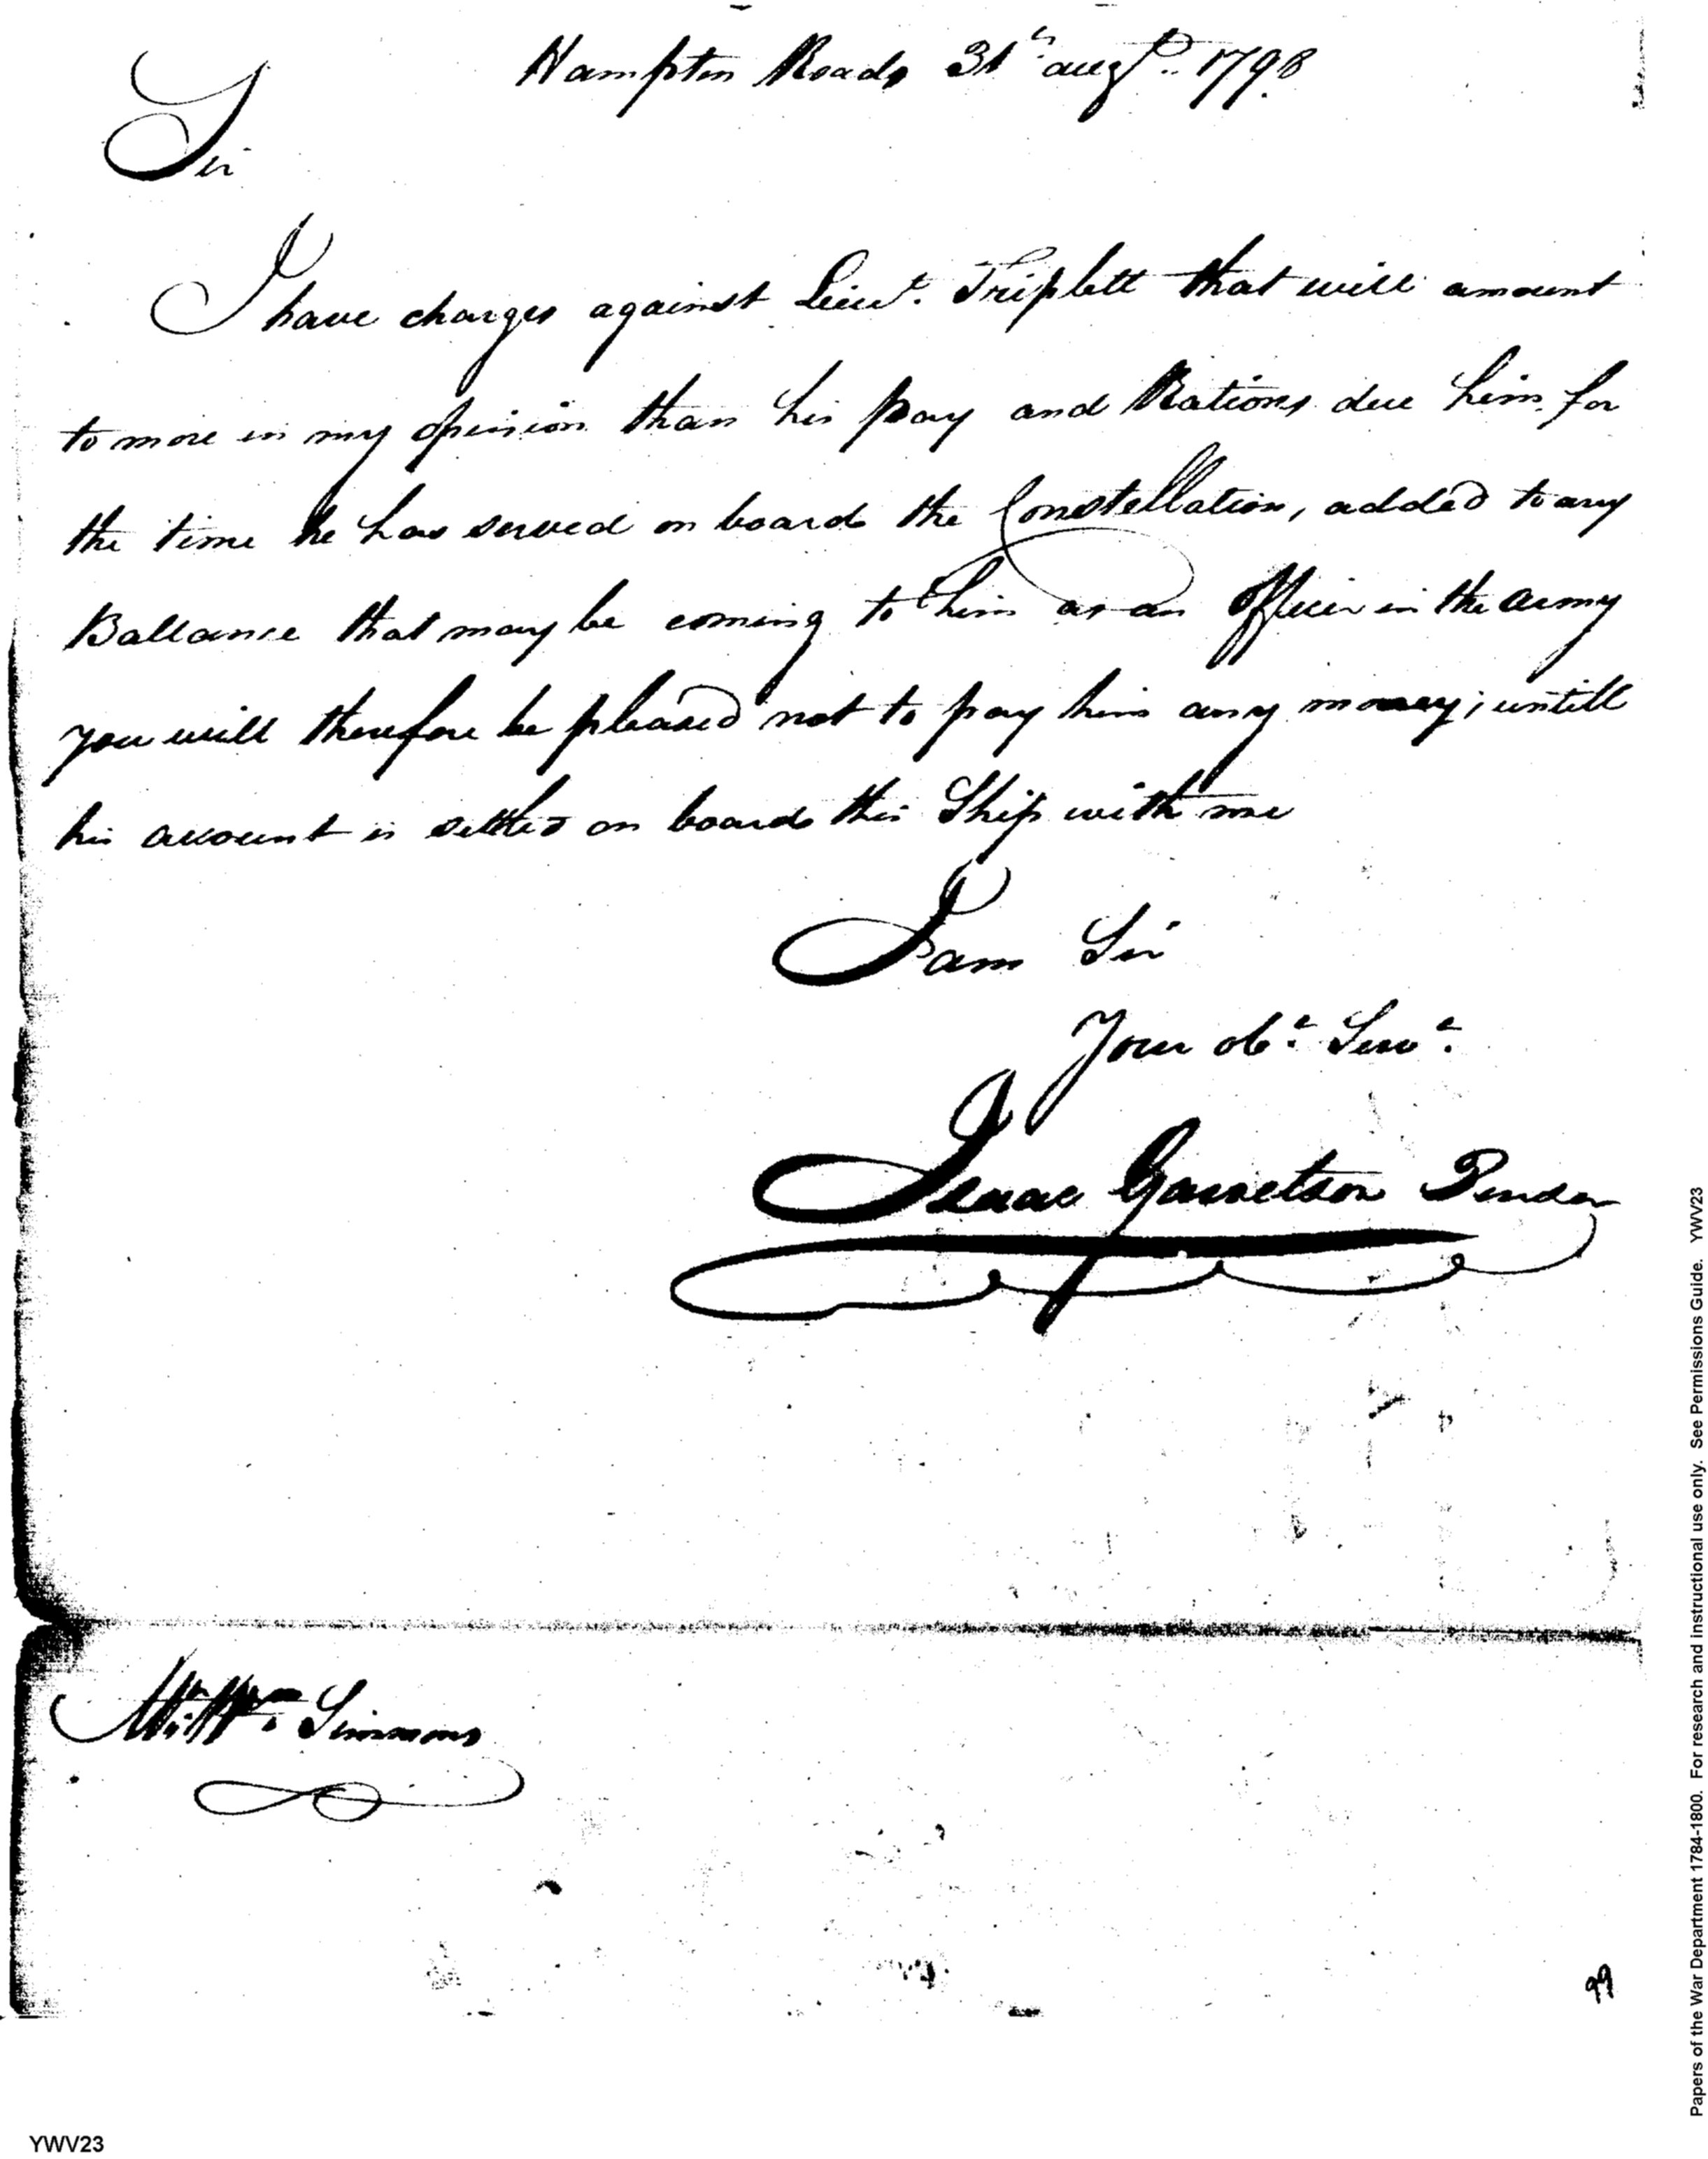 Hampton Roads 31th augt. 1798
Sir
I have charges against Lieut. Triplett that will amount
to more in my opinion than his pay and Rations due him for
the time he has served on board the Constellation, added to any
Ballance that may be coming to him as an Officer in the army
you will therefore be pleased not to pay him any money; untill
his account is settled on board this Ship with me
I am Sir
Your obt. Servt.
Isaac Garretson Purser
Mr. Wm. Simmons
99
YWV23
Papers of the War Department 1784-1800. For research and instructional use only. See Permissions Guide. YWV23